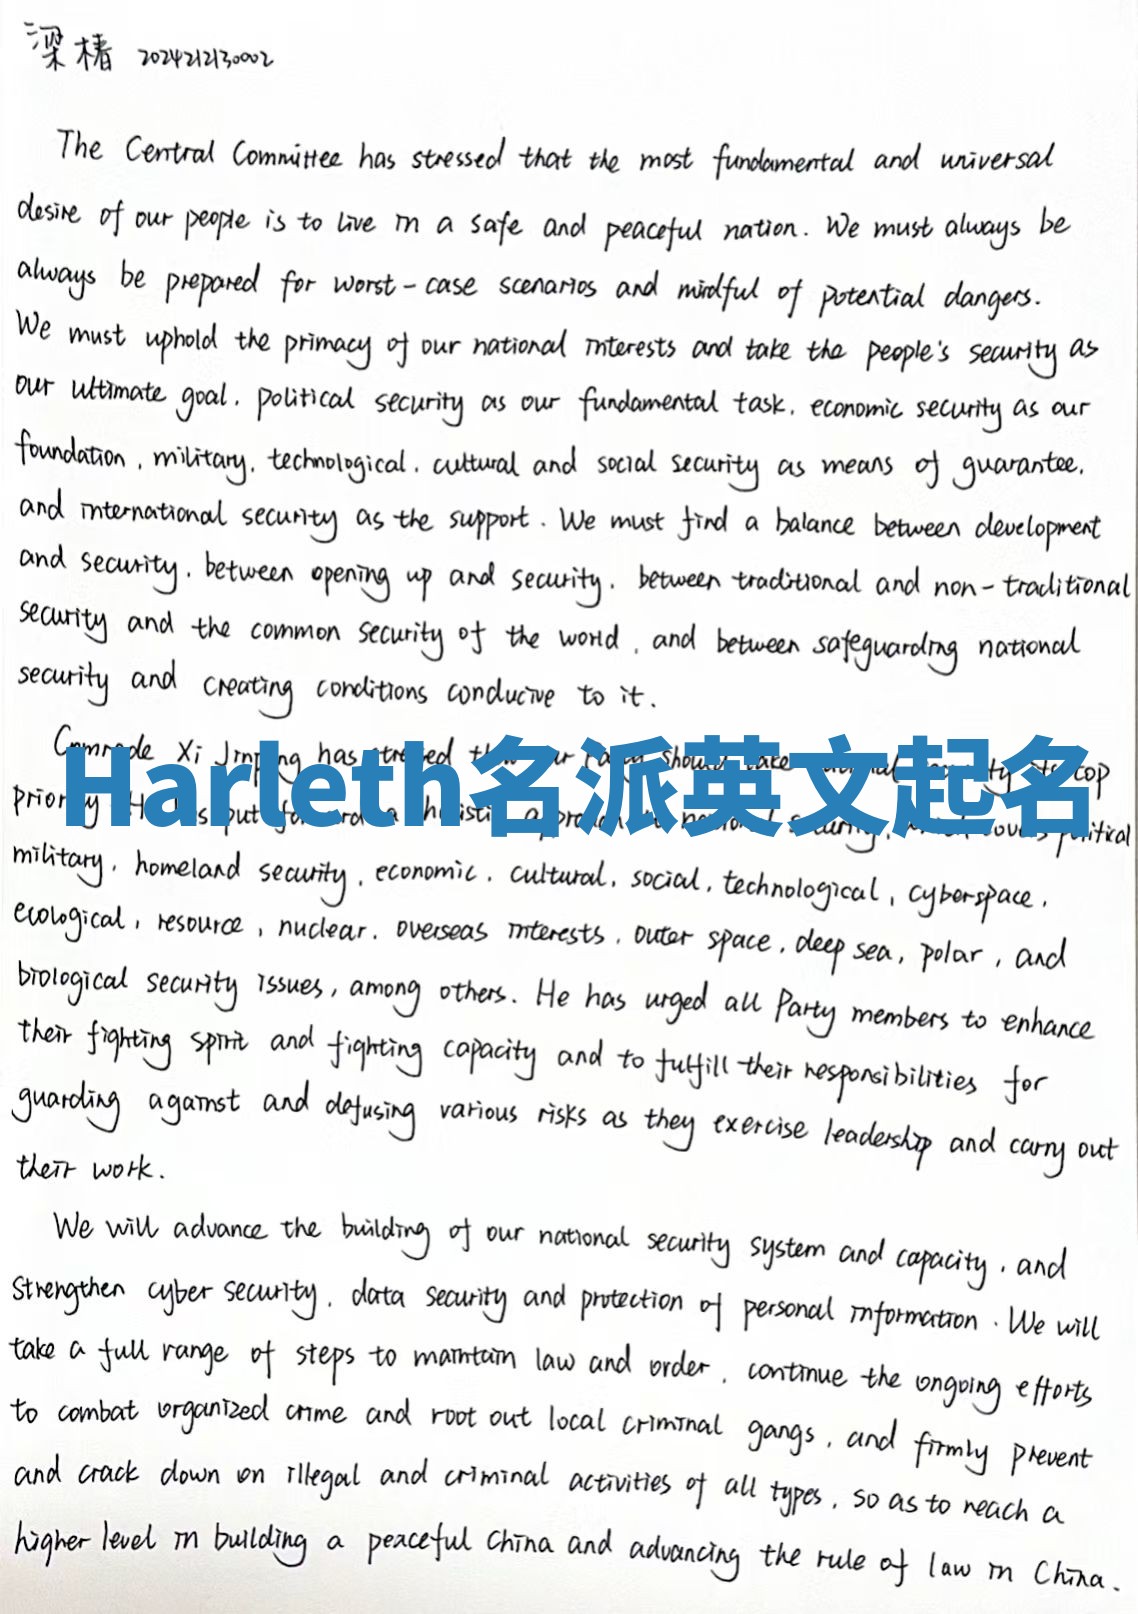 梁椿 2024212130002
The Central Committee has stressed that the most fundamental and universal
desire of our people is to live in a safe and peaceful nation. We must always be
always be prepared for worst-case scenarios and mindful of potential dangers.
We must uphold the primacy of our national interests and take the people's security as
our ultimate goal, political security as our fundamental task, economic security as our
foundation, military, technological, cultural and social security as means of guarantee,
and international security as the support. We must find a balance between development
and security, between opening up and security, between traditional and non-traditional
security and the common security of the world, and between safeguarding national
security and creating conditions conducive to it.
Comrade Xi Jinping has stressed should take top
Harleth名派英文起名
priority put political
military, homeland security, economic, cultural, social, technological, cyberspace,
ecological, resource, nuclear, overseas interests, outer space, deep sea, polar, and
biological security issues, among others. He has urged all Party members to enhance
their fighting spirit and fighting capacity and to fulfill their responsibilities for
guarding against and defusing various risks as they exercise leadership and carry out
their work.
We will advance the building of our national security system and capacity, and
strengthen cyber security, data security and protection of personal information. We will
take a full range of steps to maintain law and order, continue the ongoing efforts
to combat organized crime and root out local criminal gangs, and firmly prevent
and crack down on illegal and criminal activities of all types, so as to reach a
higher level in building a peaceful China and advancing the rule of law in China.